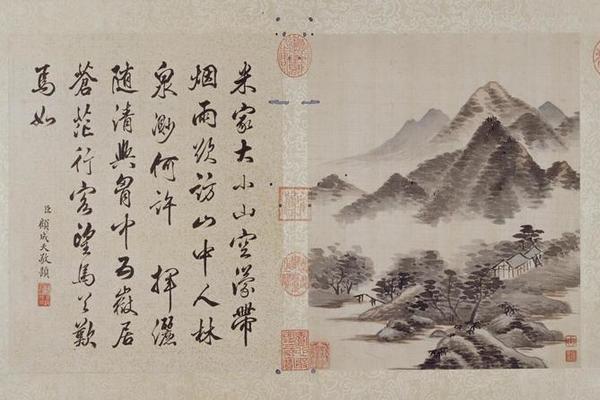 米家大小山空濛帶
烟雨欲訪山中人林
泉渺何許 揮灑
随清興胷中五嶽居
蒼茫行客望歎
焉如
臣顧成天敬題